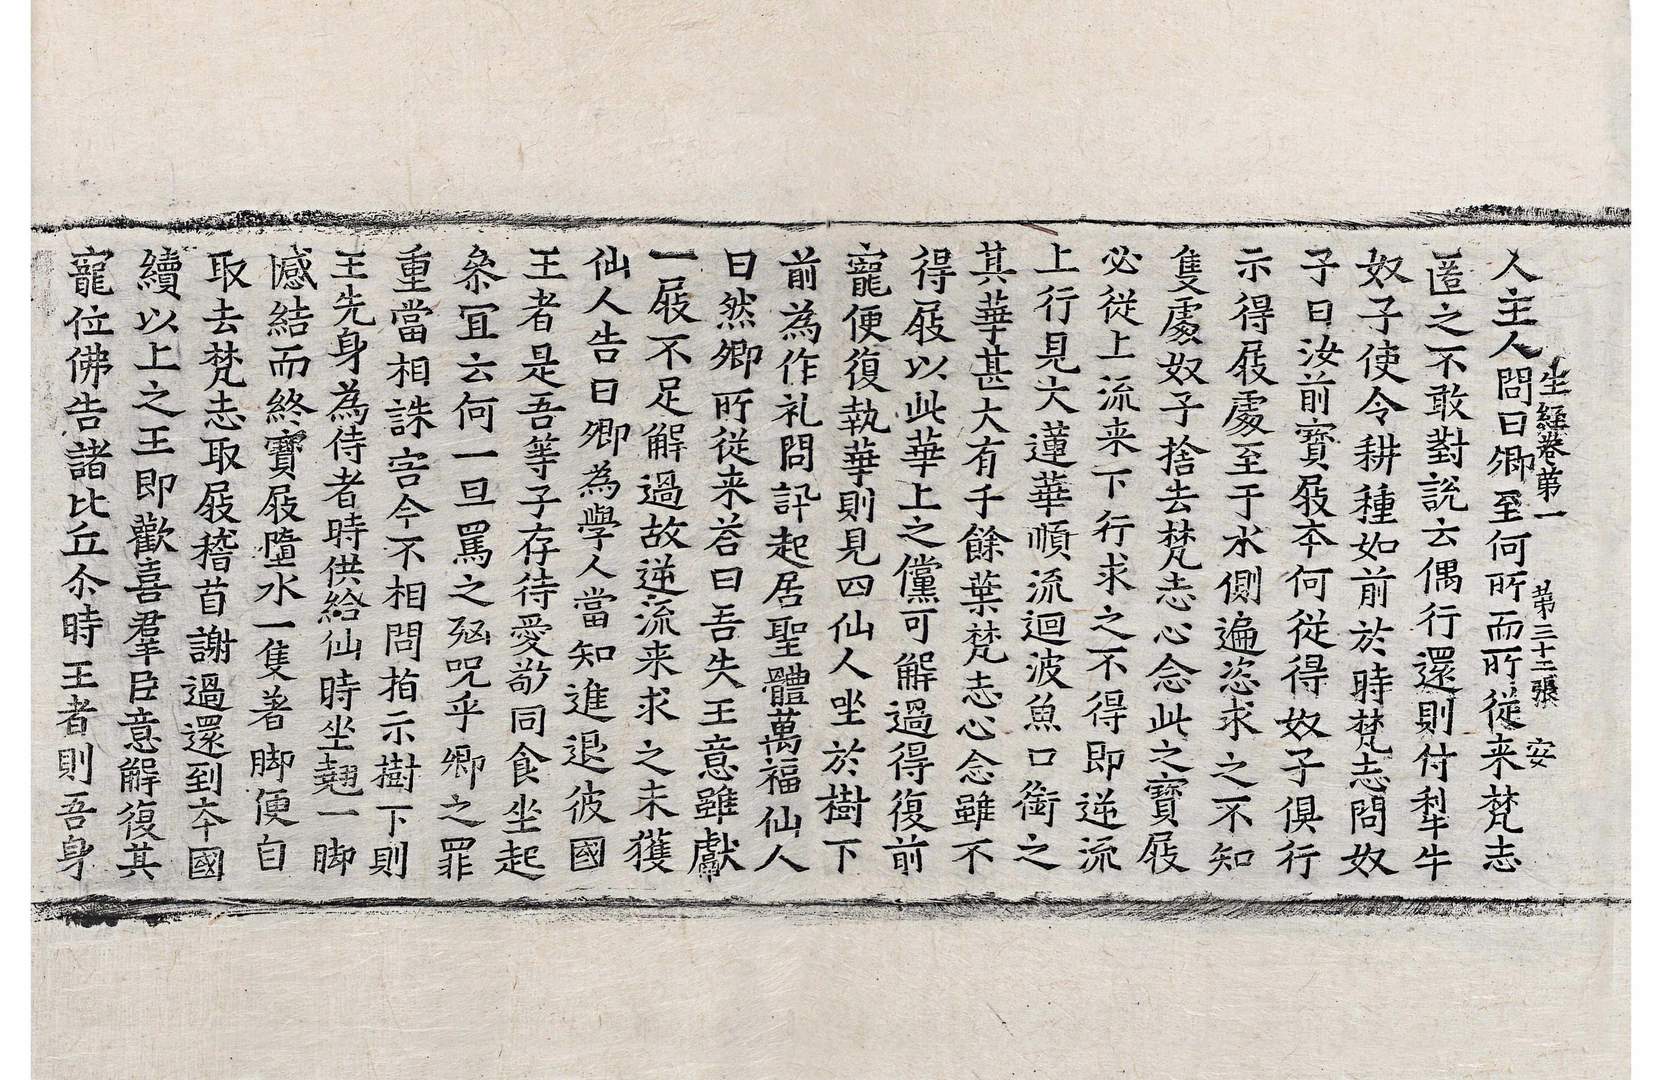 生經卷第一　第三十二張　安
人主人問曰卿至何所而所從来梵志
匿之不敢對說云偶行還則付犁牛
奴子使令耕種如前於時梵志問奴
子曰汝前寳屐夲何從得奴子俱行
示得屐處至于水側遍恣求之不知
隻處奴子捨去梵志心念此之寳屐
必從上流来下行求之不得即逆流
上行見大蓮華順流迴波魚口銜之
其華甚大有千餘葉梵志心念雖不
得屐以此華上之儻可解過得復前
寵便復執華則見四仙人坐於樹下
前為作礼問訊起居聖體萬福仙人
曰然卿所從来荅曰吾失王意雖獻
一屐不足解過故逆流来求之未獲
仙人告曰卿為學人當知進退彼國
王者是吾等子存待愛敬同食坐起
叅冝云何一旦罵之殃呪乎卿之罪
重當相誅害今不相問指示樹下則
王先身為侍者時供給仙時坐翹一脚
憾結而終寳屐墮水一隻著脚便自
取去梵志取屐稽首謝過還到夲國
續以上之王即歡喜羣臣意解復其
寵位佛告諸比丘尒時王者則吾身